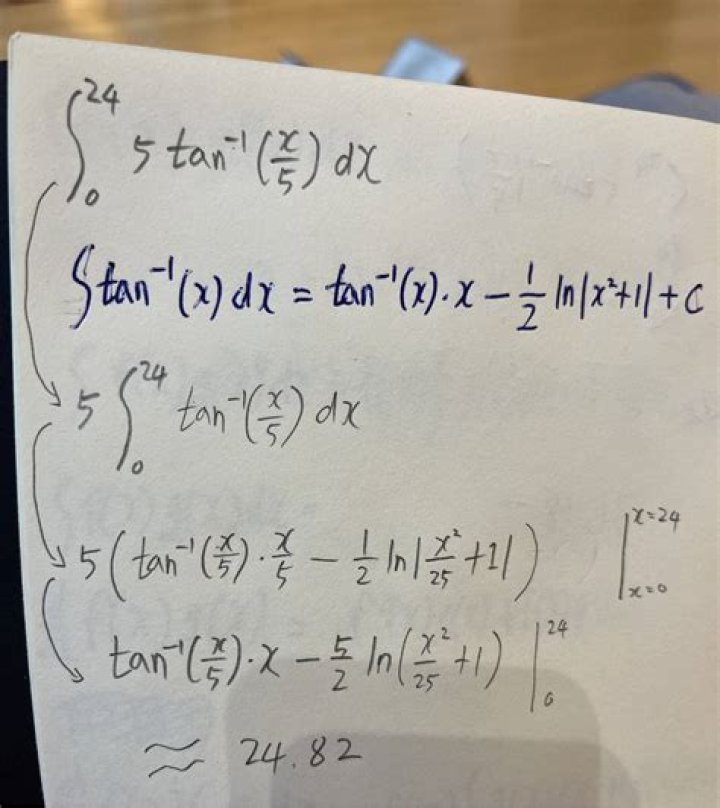 ∫₀²⁴ 5 tan⁻¹(x/5) dx
∫tan⁻¹(x) dx = tan⁻¹(x)·x − 1/2 ln|x²+1| + C
5 ∫₀²⁴ tan⁻¹(x/5) dx
5(tan⁻¹(x/5)·x/5 − 1/2 ln|x²/25 + 1|) |ₓ₌₀ˣ⁼²⁴
tan⁻¹(x/5)·x − 5/2 ln(x²/25 + 1) |₀²⁴
≈ 24.82